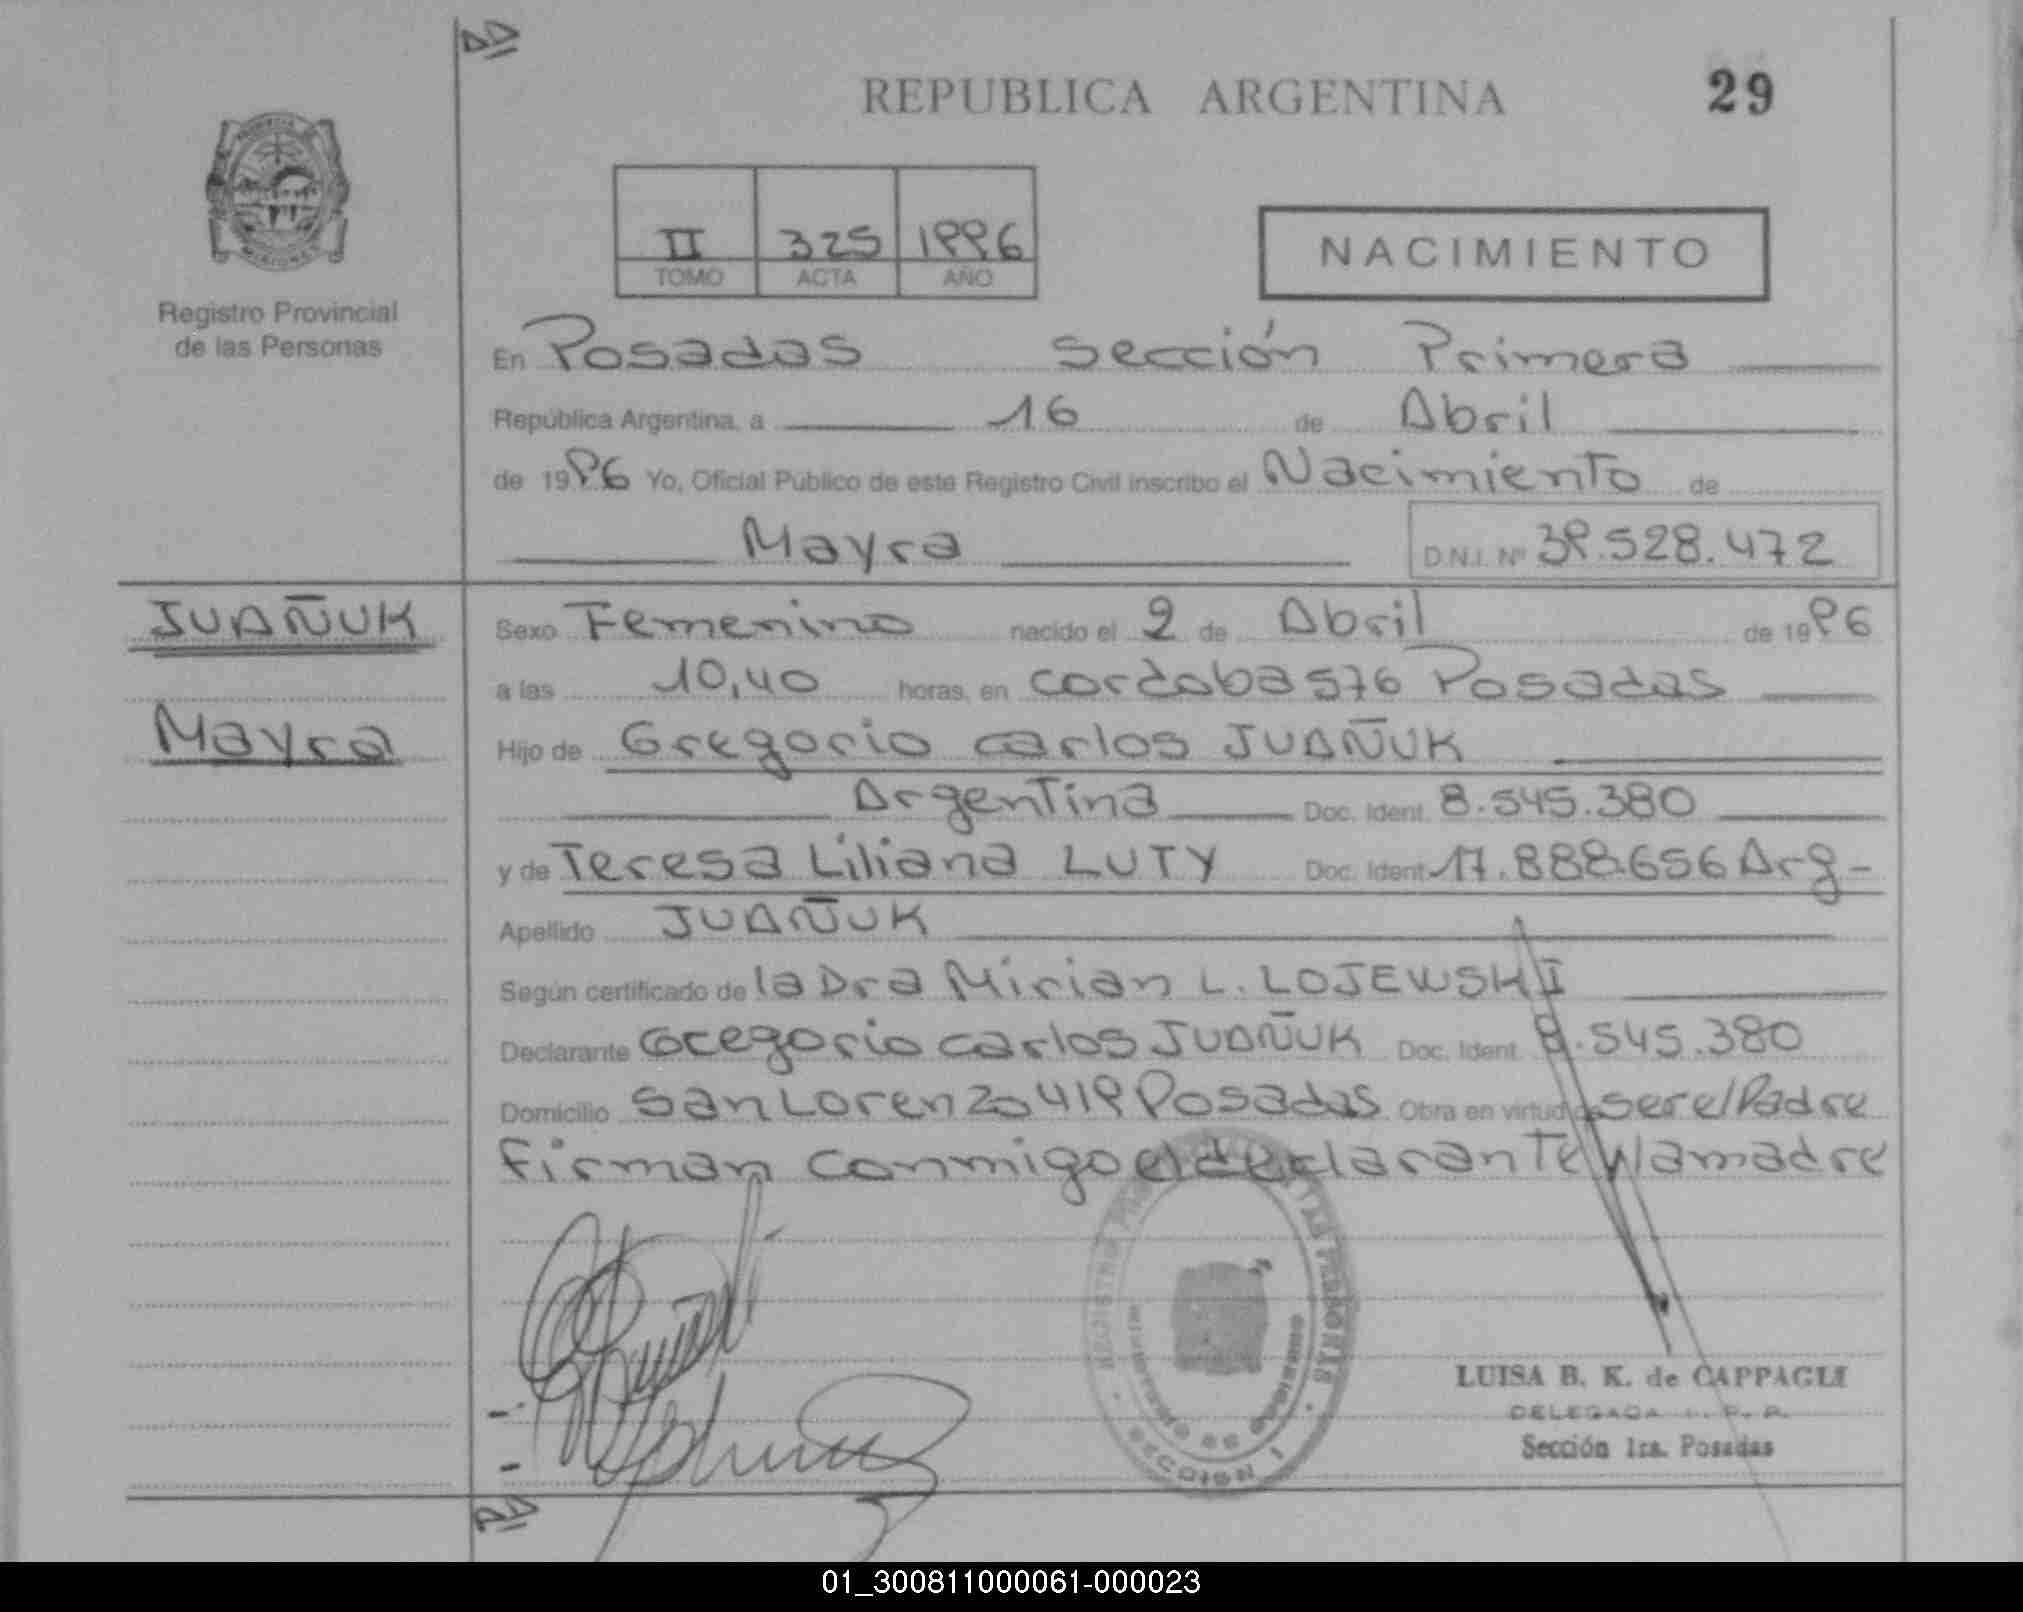 REPUBLICA ARGENTINA 29
II 325 1996
TOMO ACTA AÑO
NACIMIENTO
Registro Provincial
de las Personas
En Posadas Sección Primera
República Argentina, a 16 de Abril
de 1996 Yo, Oficial Público de este Registro Civil inscribo el Nacimiento de
Mayra D.N.I. Nº 39.528.472
JUAÑUK
Mayra
Sexo Femenino nacido el 2 de Abril de 1996
a las 10,40 horas, en cordoba 576 Posadas
Hijo de Gregorio carlos JUAÑUK
Argentina Doc. Ident. 8.545.380
y de Teresa Liliana LUTY Doc. Ident. 17.888.656 Arg-
Apellido JUAÑUK
Según certificado de la Dra Mirian L. LOJEWSKI
Declarante Gregorio carlos JUAÑUK Doc. Ident. 8.545.380
Domicilio San Lorenzo 419 Posadas Obra en virtud de ser el Padre
Firman conmigo el declarante y la madre
SECCION 1
LUISA B. K. de CAPPAGLI
DELEGADA R. P. P.
Sección 1ra. Posadas
01_300811000061-000023